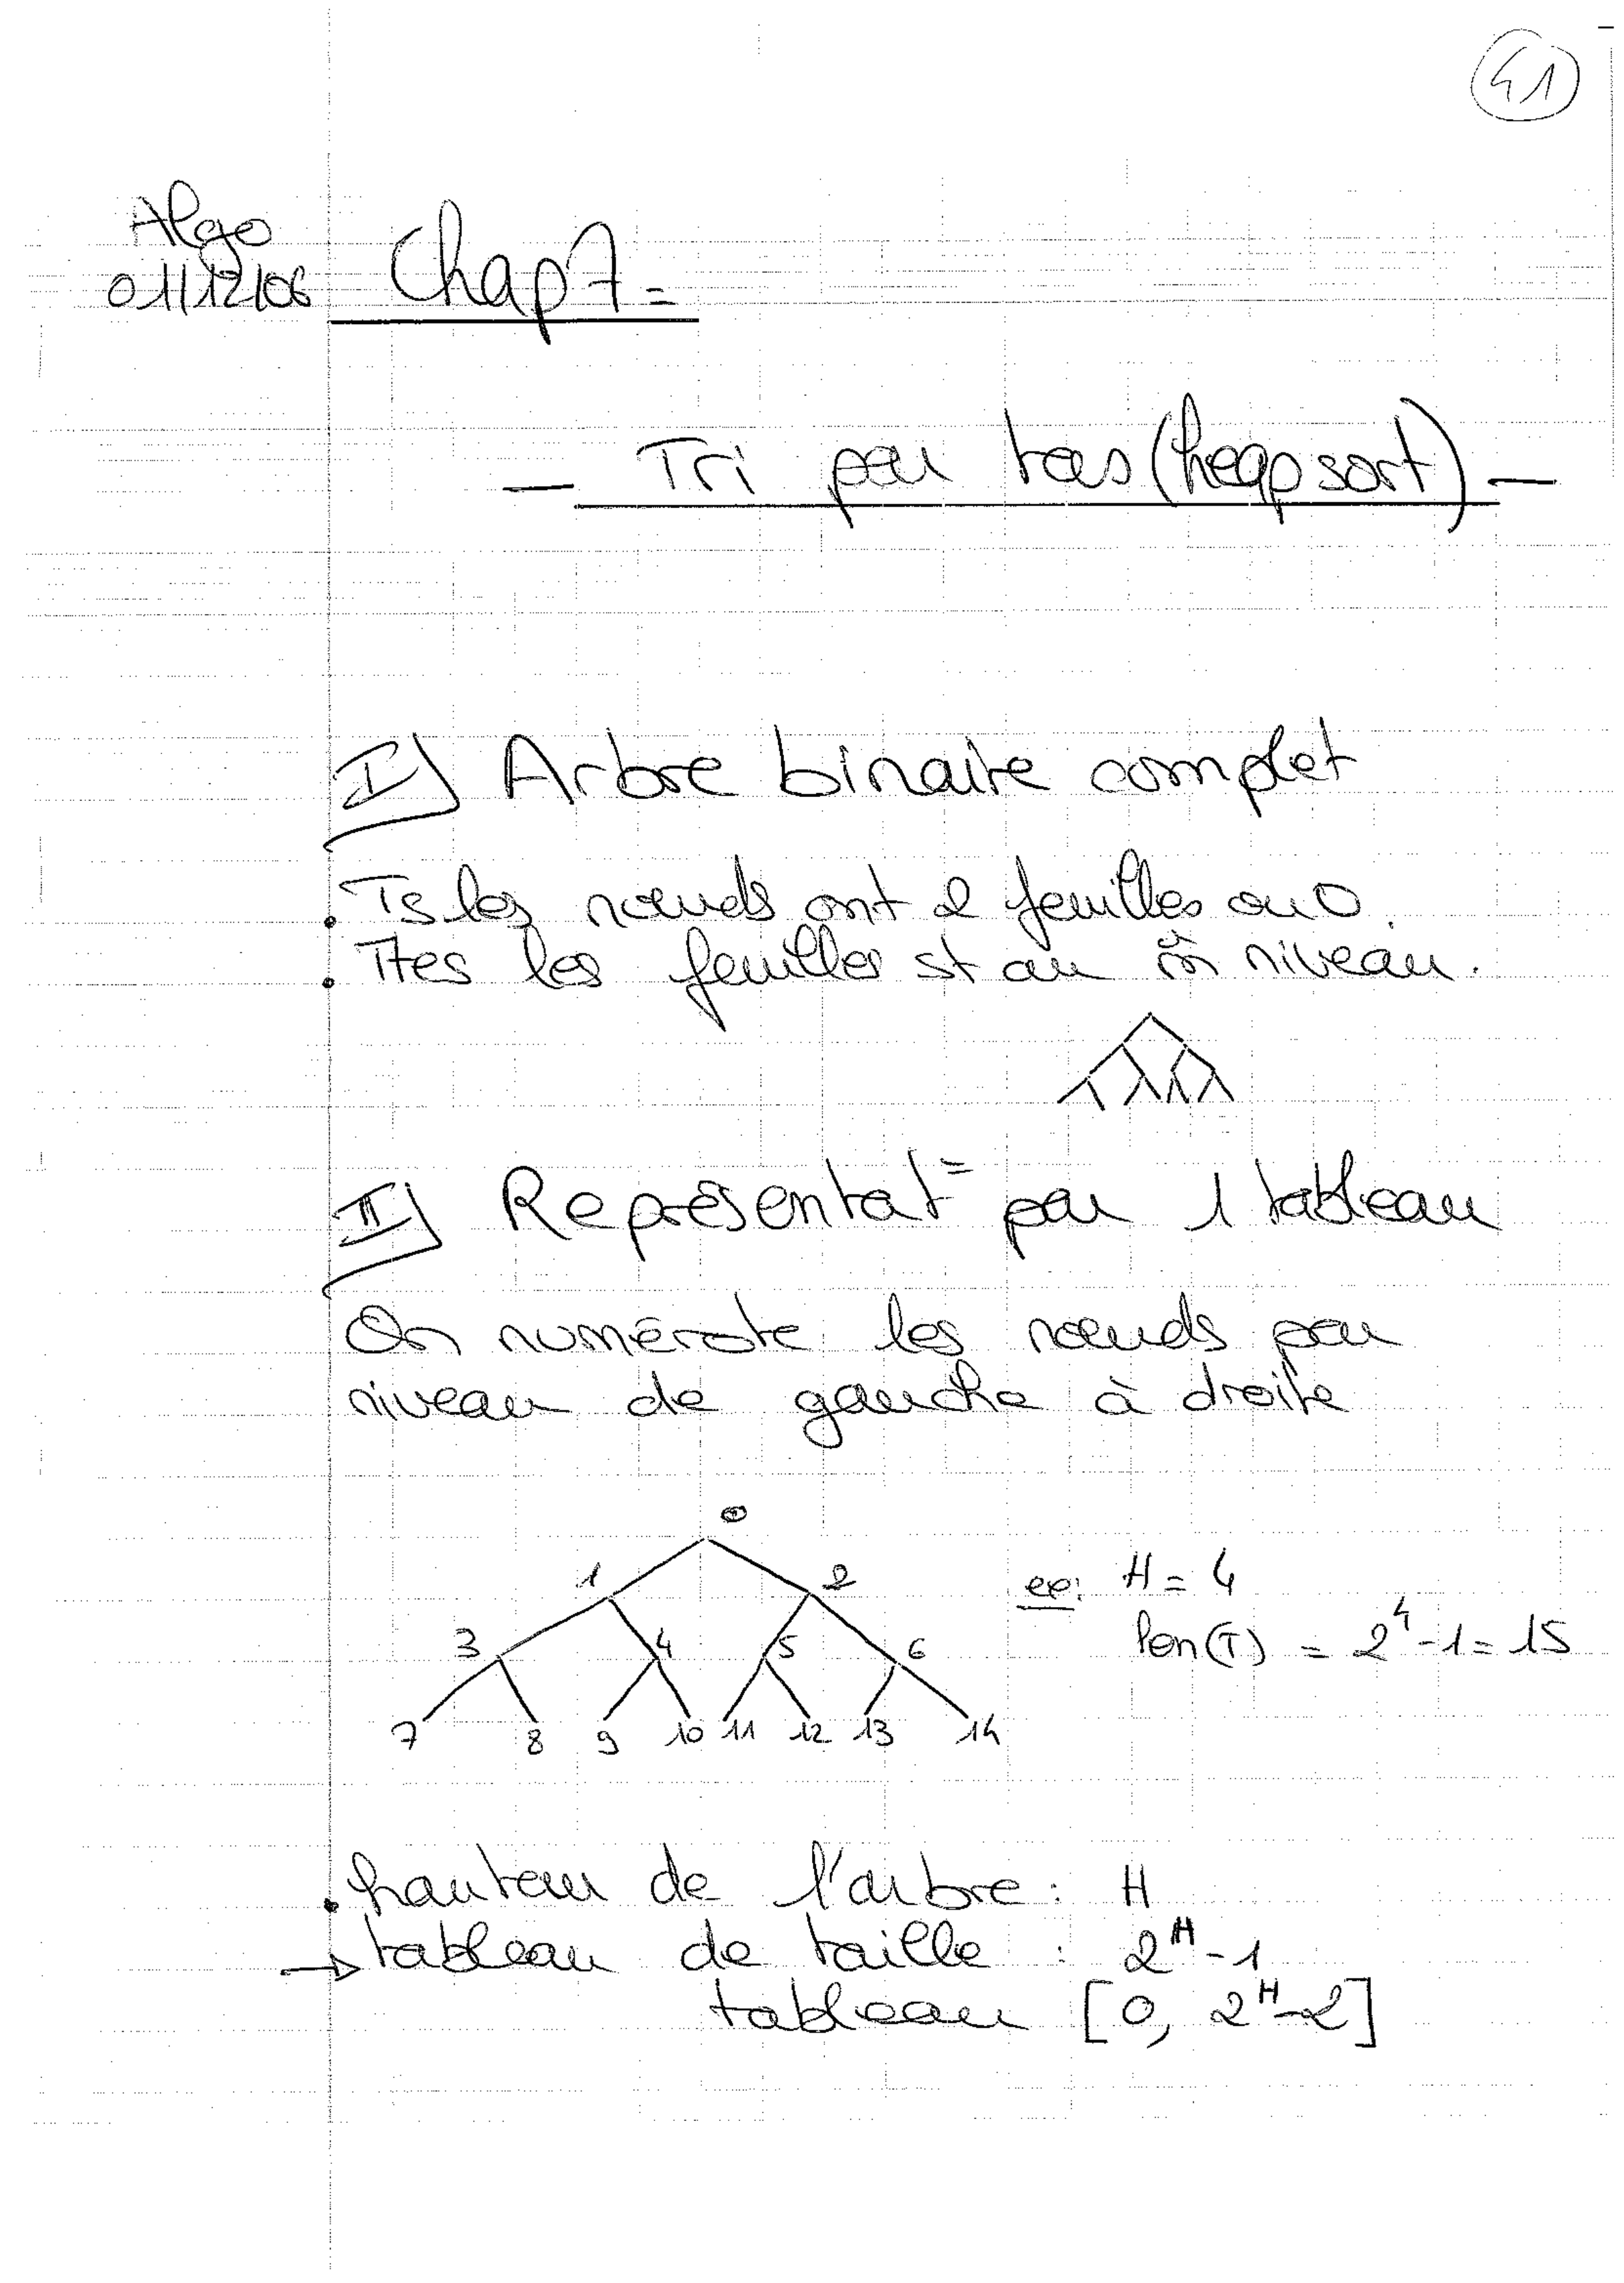 41
Algo
01/12/06
Chap7=
— Tri par tas (heapsort) —
I) Arbre binaire complet
. Ts les nœuds ont 2 feuilles ou 0.
. Ttes les feuilles st au m̂ niveau.
II) Représentat= par 1 tableau
On numérote les nœuds par
niveau de gauche à droite
0
1 2
3 4 5 6
7 8 9 10 11 12 13 14
ex: H = 4
len(T) = 2⁴-1 = 15
. hauteur de l'arbre : H
→ tableau de taille : 2ᴴ-1
tableau [0, 2ᴴ-2]